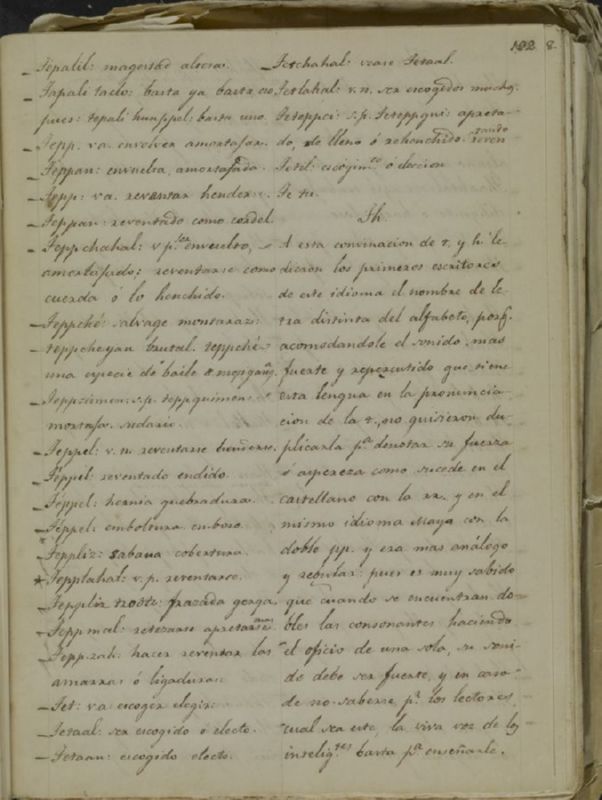 122 8
_Tepalil: magestad alteza.
_Tapali taclo: basta ya basta eso
pues: tepali hunppel: basta uno
_Tepp. va. envolver amortajar
_Teppan: envuelta, amortajada
_Tepp: va. reventar hender.
_Teppan: reventado como cordel.
_Teppchahal: v p. ser envuelto,
amortajado; reventarse como
cuerda ó lo henchido.
_Teppché: salvage montaraz:
teppcheyan brutal. teppché
una especie de baile
_Teppzimen: s.p. teppquimen
mortaja. sudario.
_Teppel: v. n. reventarse henderse.
_Teppel: reventado endido.
_Teppel: hernia quebradura.
_Teppel: emboltura emboso.
_Teppliz: sabana cobertura.
*Tepplahal: v. p. reventarse.
_Teppliz tzotz: frazada gerga
_Teppmal: retezarse apretarse
_Teppzah: hacer reventar las
amarras ó ligaduras
_Tet: va. escoger elegir.
_Tetaal: ser escogido ó electo.
_Tetaan: escogido electo.
_Tetchahal: vease Tetaal.
_Tetlahal: v. n. ser escogidos muchos
_Tetoppci: s.p. Tetoppqui: apreta-
do, de lleno ó rehenchido. reven
tando
_Tetil: escogimto ó eleccion
_Te tu.
Th.
A esta convinacion de t. y h. le
dieron los primeros escritores
de este idioma el nombre de le-
tra distinta del alfabeto, porq.
acomodandole el sonido mas
fuerte y repercutido que tiene
esta lengua en la pronuncia-
cion de la t., no quisieron du-
plicarla pa. denotar su fuerza
ó aspereza como sucede en el
castellano con la rr. y en el
mismo idioma Maya con la
doble pp. y era mas análogo
y regular: pues es muy sabido
que cuando se encuentran do-
bles las consonantes haciendo
el oficio de una sola, su soni-
do debe ser fuerte, y en caso
de no saberse pr. los lectores
cual sea este, la viva voz de los
intelig.tes basta pa. enseñarle.